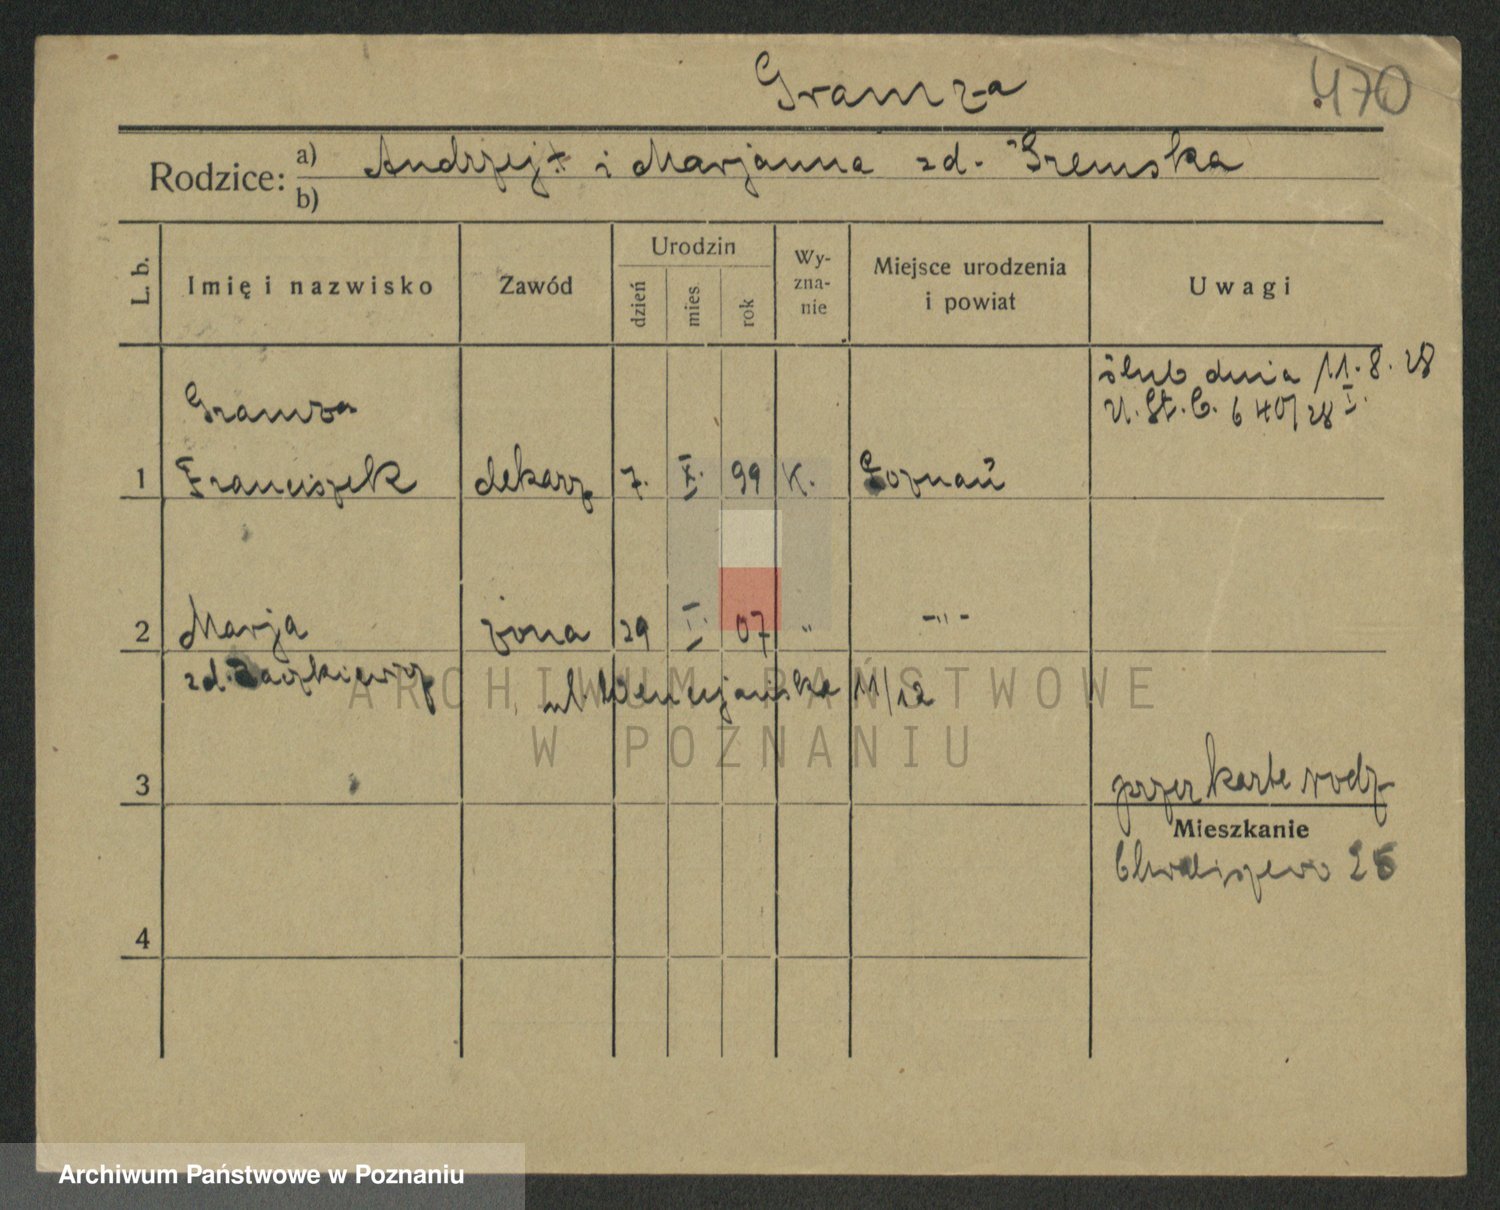 Gramza
470
Rodzice: a) Andrzej + i Marjanna zd. Sremska
b)
L. b. Imię i nazwisko Zawód Urodzin dzień mies. rok Wyznanie Miejsce urodzenia i powiat Uwagi
ślub dnia 11.8.28
U.St.C. 640/28 I.
Gramza
1 Franciszek dekarz 7. X. 99 K. Poznań
2 Marja żona 29 I. 07 " -"-
zd.
ul. Wenecjańska 11/12
ARCHIWUM PAŃSTWOWE
W POZNANIU
3
patrz kartę rodz.
Mieszkanie
Chwaliszewo 25
4
Archiwum Państwowe w Poznaniu